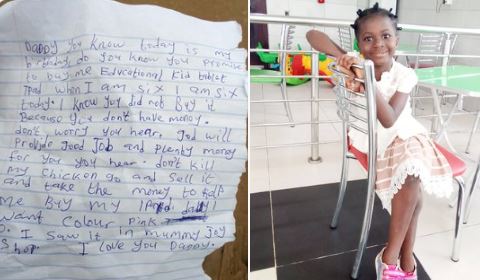 Daddy you know today is my
birthday, do you know you promise
to buy me Educational kid tablet
Ipad when I am six I am six
today. I know you did not Buy it
Because you don't have money.
don't worry you hear. God will
Provide Good Job and plenty money
for you you hear. don't kill
my chicken go and sell it
and take the money to
me Buy my IPad daddy
Want Colour Pink
D. I saw it in mummy Joy
Shop. I love you Daddy.